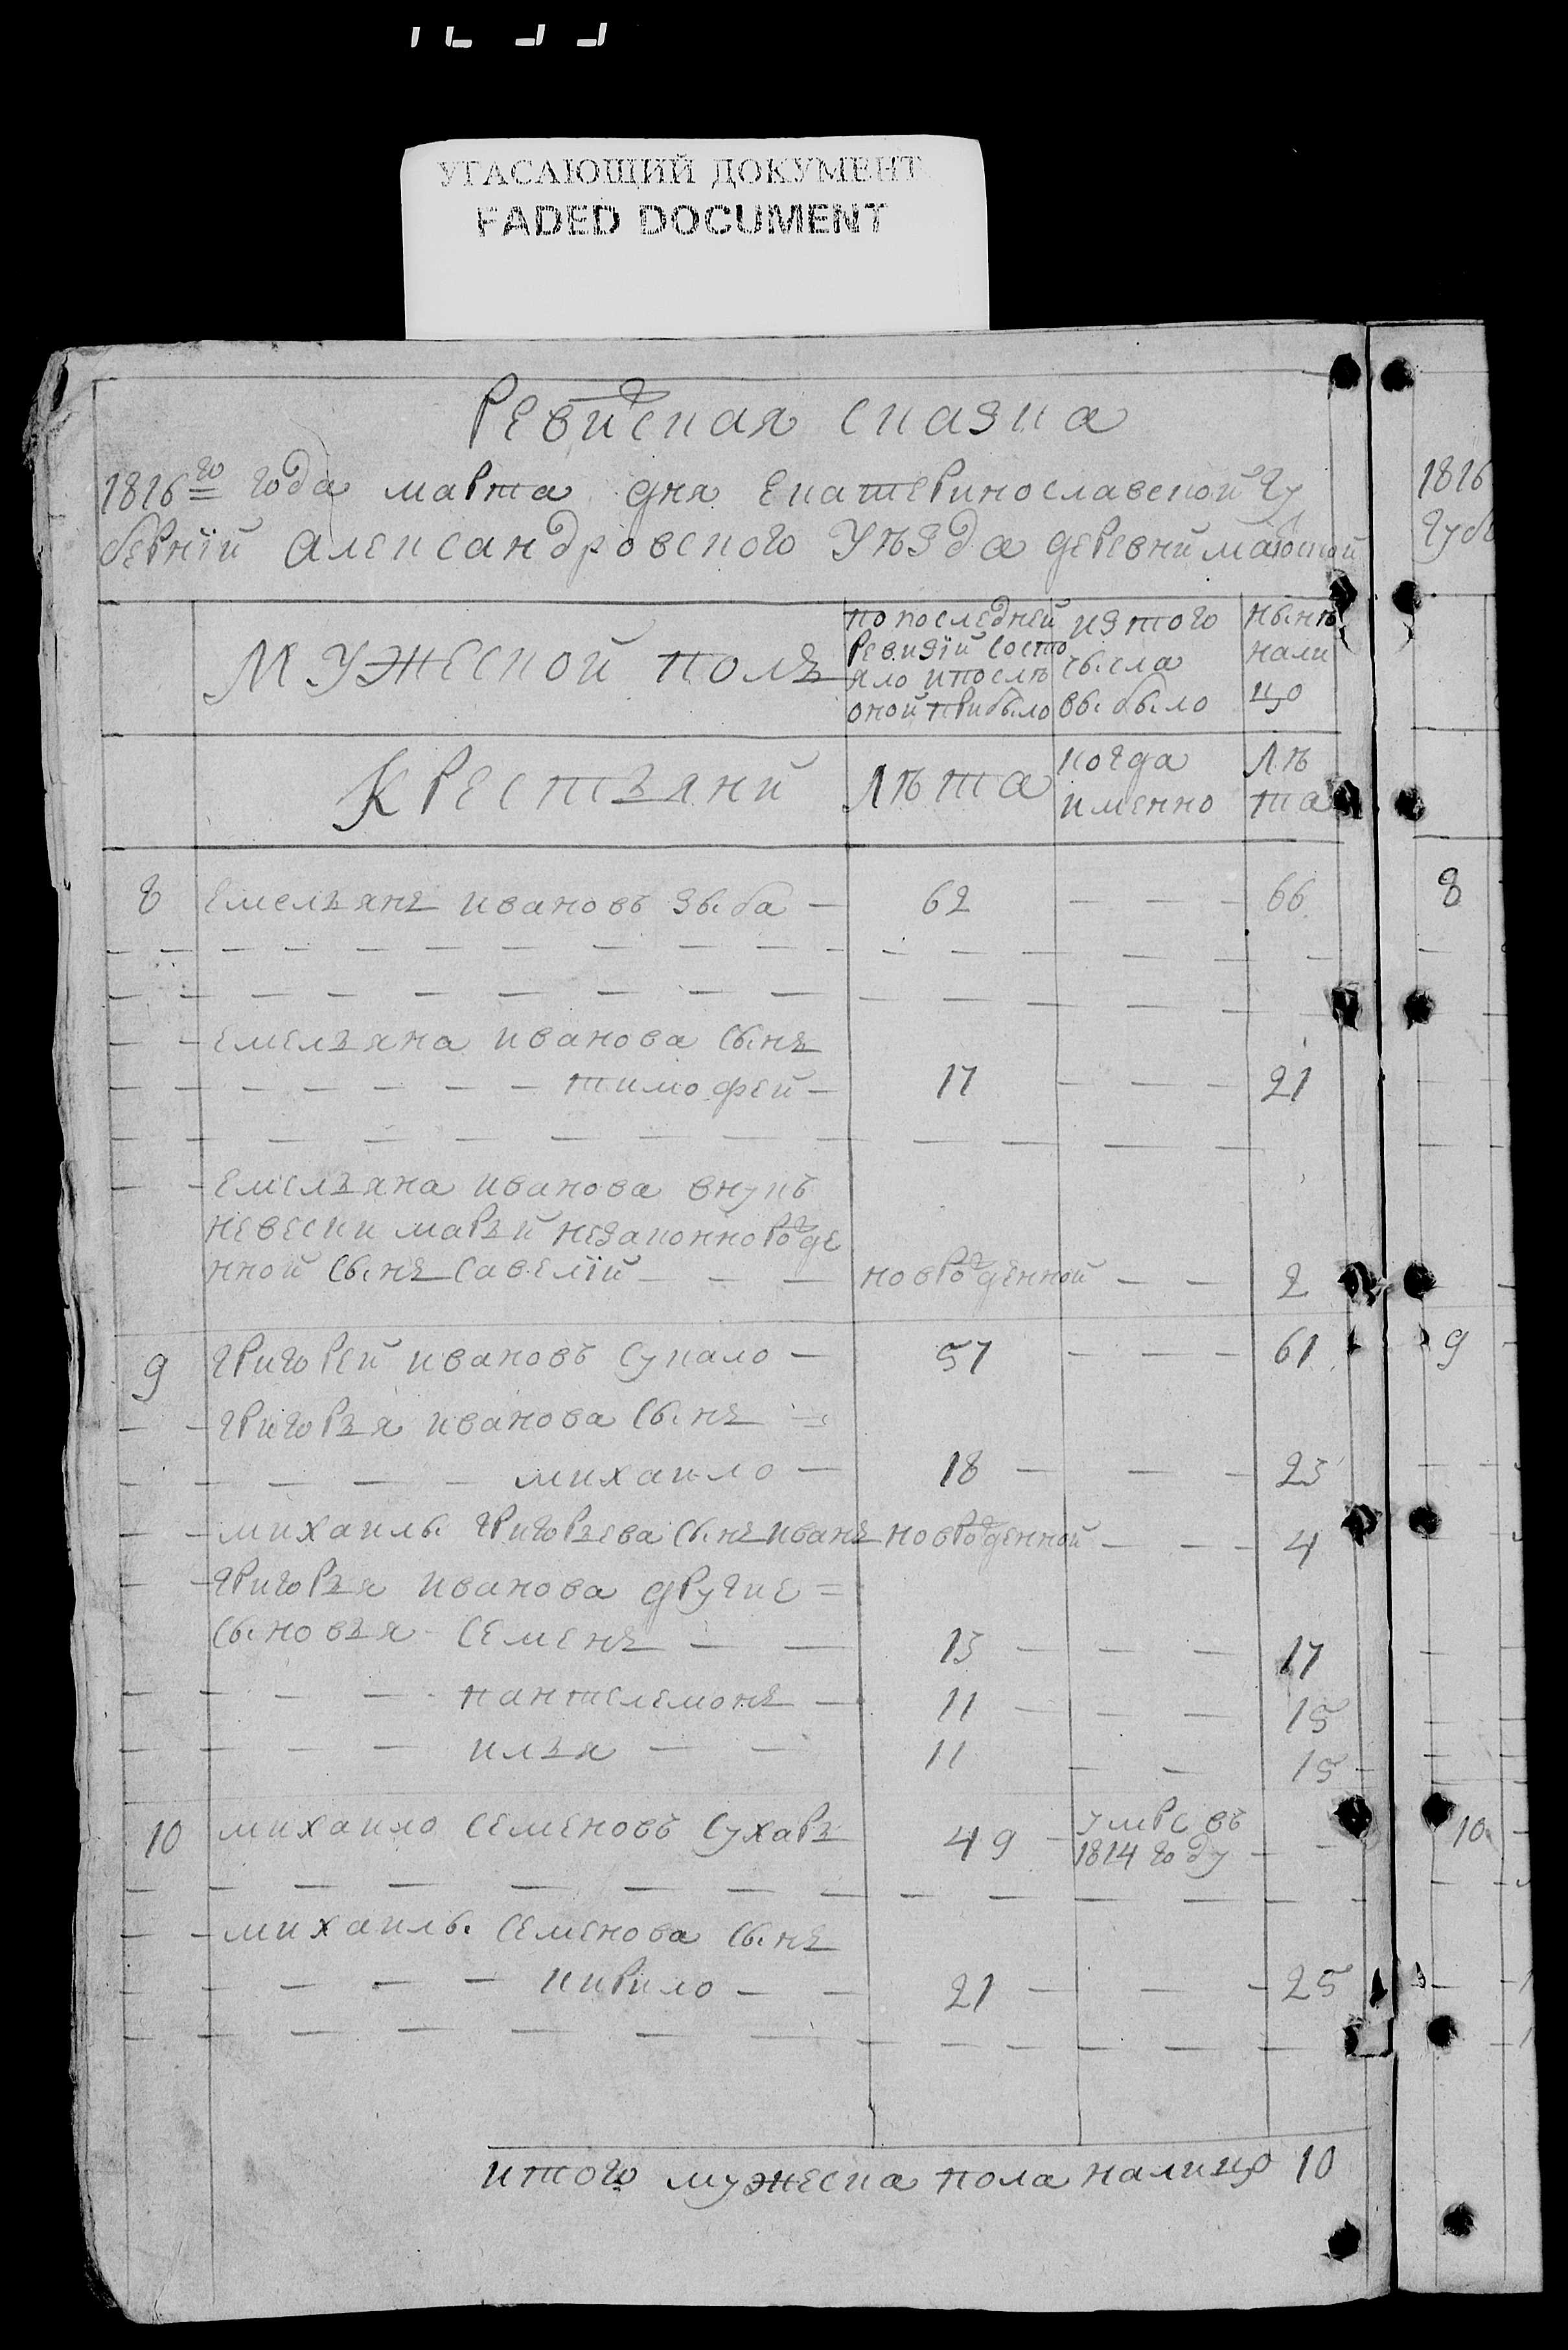 УГАСАЮЩИЙ ДОКУМЕНТ
FADED DOCUMENT
Ревиская сказка
1816го года марта дня Екатеринославской Гу
берний Александровского Уѣзда деревни маіостой
1816
Губе
Мужеской полъ
по последней ревизїи состояло и послѣ оной прибыло
из того чысла выбыло
нынѣ налицо
Крестъяни
Лѣта
когда именно
Лѣта
8 Емельянъ Ивановъ Зыба 62 66
8
Емельяна Иванова сынъ
тимофей 17 21
Емельяна Иванова внукъ
невески маръи незаконнорожде
нной сынъ Савелїй новрожденной 2
9 Григорей Ивановъ Сукало 57 61
9
Григоръя Иванова сынъ
михаило 18 23
михаилы Григоръева сынъ иванъ новрожденной 4
Григоръя Иванова другие
сыновъя Семенъ 13 17
пантелемонъ 11 15
илья 11 15
10 михаило Семеновъ Сухаръ 49 умре въ 1814 году
10
михаилы Семенова сынъ
кирило 21 25
итого мужеска пола налицо 10